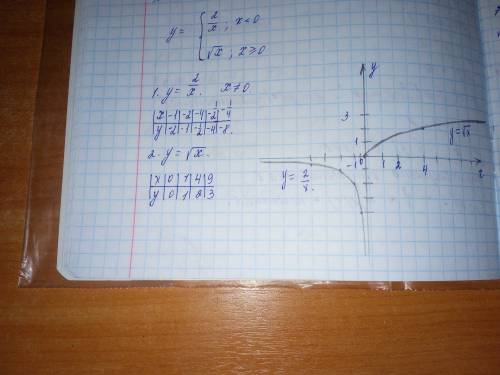 y = { 2/x ; x < 0
√x ; x ≥ 0
1. y = 2/x. x ≠ 0
x | -1 | -2 | -4 | -1/2 | -1/4
y | -2 | -1 | -1/2 | -4 | -8.
2. y = √x.
x | 0 | 1 | 4 | 9
y | 0 | 1 | 2 | 3
y
3
y = √x
1
-1 0 1 2 4
y = 2/x.